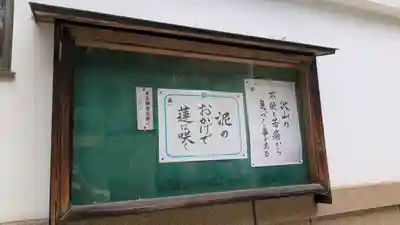 沢山の
不快な苦痛から
気づく事がある
泥の
おかげで
蓮は咲く